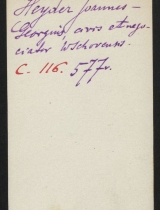 Heyder Joannes-
Georgius, civis et nego-
ciator
C. 116. 577v.